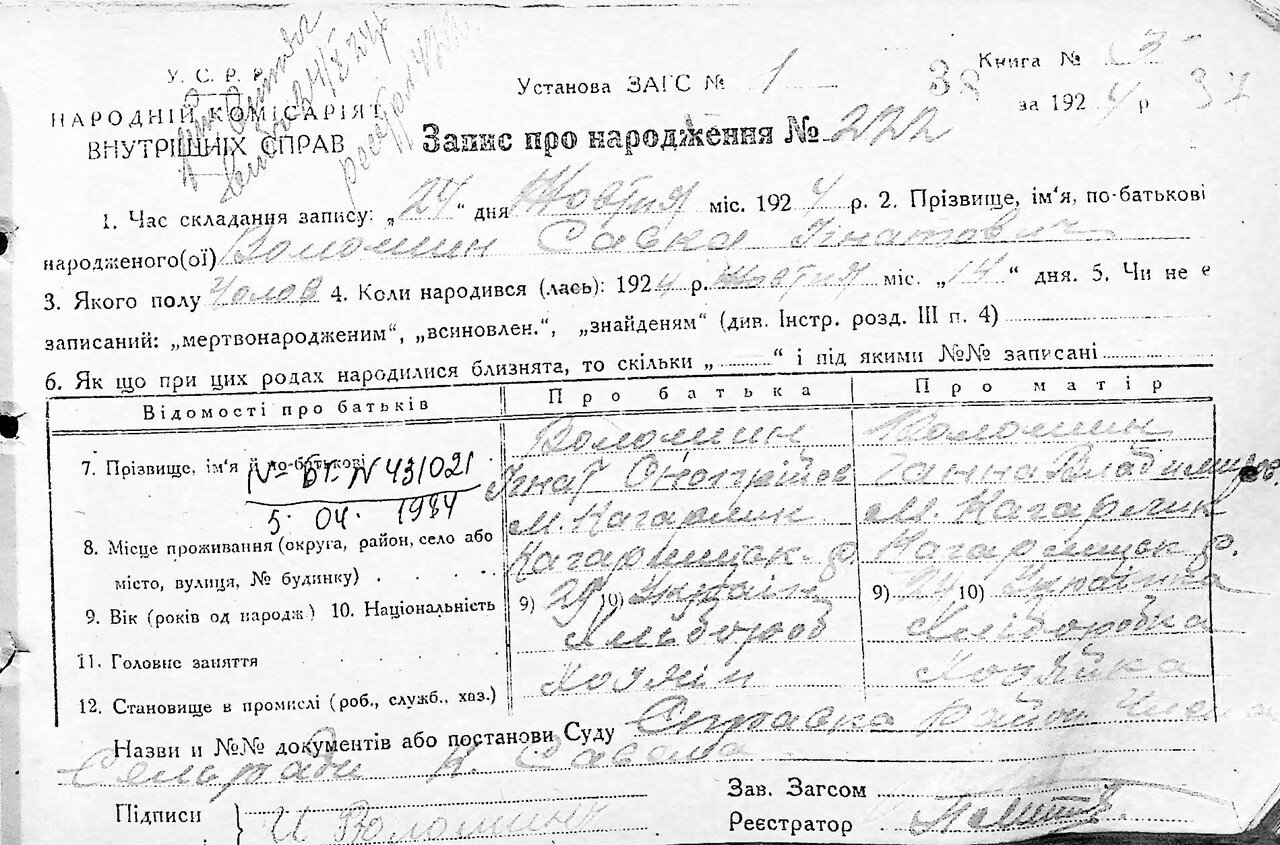 У. С. Р. Р.
НАРОДНІЙ КОМІСАРІЯТ
ВНУТРІШНІХ СПРАВ
Установа ЗАГС № 1
Книга № 3
за 1924 р
Запис про народження № 222
1. Час складання запису: „24“ дня Жовтня міс. 1924 р. 2. Прізвище, ім'я, по-батькові
народженого(ої) Воломин Савка Гнатович
3. Якого полу Чолов 4. Коли народився (лась): 1924 р. Жовтня міс. „14“ дня. 5. Чи не є
записаний: „мертвонародженим“, „всиновлен.“, „знайденям“ (див. Інстр. розд. III п. 4)
6. Як що при цих родах народилися близнята, то скільки „ “ і під якими №№ записані
Відомості про батьків Про батька Про матір
7. Прізвище, ім'я й по-батькові Воломин Воломин
Гнат Ганна Владимиров.
№ 431021
5. 04. 1984
м. Кагарлик м. Кагарлик
8. Місце проживання (округа, район, село або
місто, вулиця, № будинку) Кагарлицьк. р. Кагарлицьк р.
9. Вік (років од народж.) 10. Національність 9) 29 10) Україн 9) 24 10) Українка
11. Головне заняття Хлібороб Хліборобка
12. Становище в промислі (роб., служб., хаз.) Хозяін Хозяйка
Назви и №№ документів або постанови Суду Справка
Сельради
Підписи
Зав. Загсом
Реєстратор